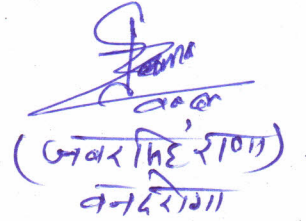 (जबर सिंह राणा)
वनदरोगा